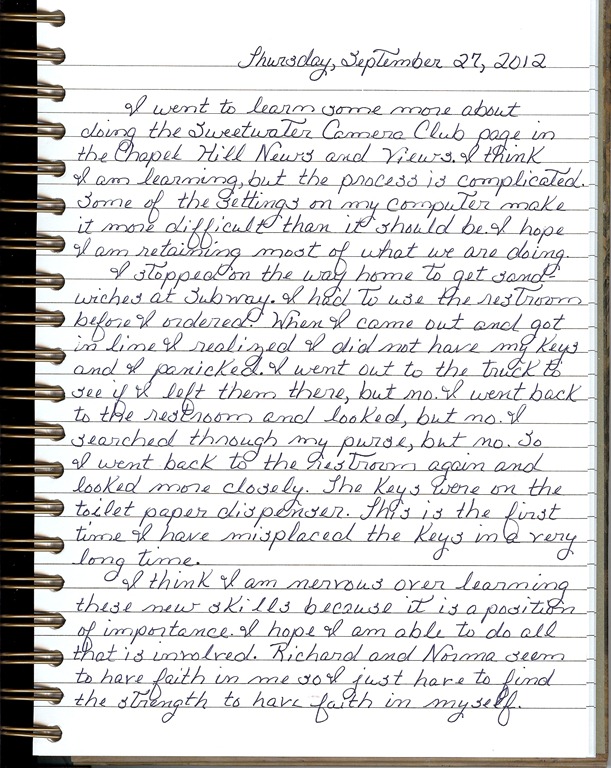 Thursday, September 27, 2012
I went to learn some more about
doing the Sweetwater Camera Club page in
the Chapel Hill News and Views. I think
I am learning, but the process is complicated.
Some of the settings on my computer make
it more difficult than it should be. I hope
I am retaining most of what we are doing.
I stopped on the way home to get sand-
wiches at Subway. I had to use the restroom
before I ordered. When I came out and got
in line I realized I did not have my keys
and I panicked. I went out to the truck to
see if I left them there, but no. I went back
to the restroom and looked, but no. I
searched through my purse, but no. So
I went back to the restroom again and
looked more closely. The keys were on the
toilet paper dispenser. This is the first
time I have misplaced the keys in a very
long time.
I think I am nervous over learning
these new skills because it is a position
of importance. I hope I am able to do all
that is involved. Richard and Norma seem
to have faith in me so I just have to find
the strength to have faith in myself.